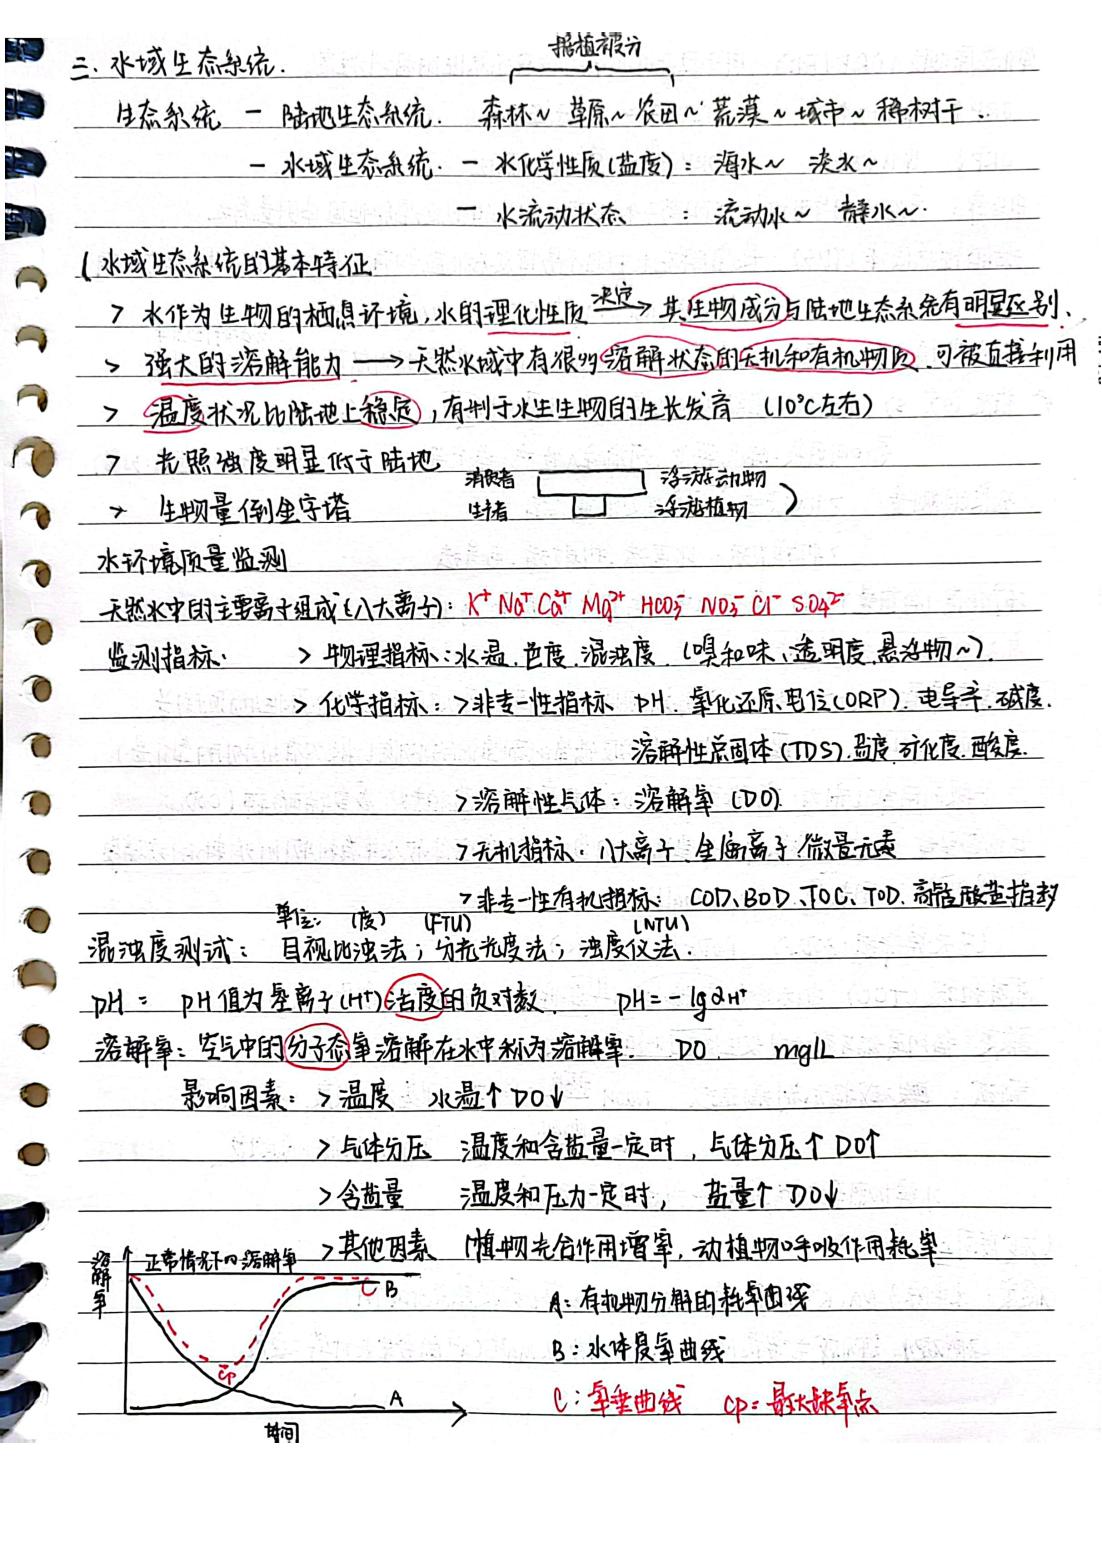 三. 水域生态系统.
据植被部分
生态系统 — 陆地生态系统. 森林~ 草原~ 农田~ 荒漠~ 城市~ 稀树干.
— 水域生态系统. — 水化学性质(盐度): 海水~ 淡水~
— 水流动状态 : 流动水~ 静水~.
1 水域生态系统的基本特征
> 水作为生物的栖息环境,水的理化性质 决定→ 其生物成分与陆地生态系统有明显区别.
> 强大的溶解能力 → 天然水域中有很多溶解状态的无机和有机物质,可被直接利用
> 温度状况比陆地上稳定,有利于水生生物的生长发育 (10℃左右)
> 光照强度明显低于陆地
> 生物量倒金字塔 消费者 浮游动物
生产者 浮游植物
水环境质量监测
天然水中的主要离子组成(八大离子): K⁺ Na⁺ Ca²⁺ Mg²⁺ HCO₃⁻ NO₃⁻ Cl⁻ SO₄²⁻
监测指标: > 物理指标:水温.色度.混浊度.(嗅和味、透明度、悬浮物~).
> 化学指标: >非专一性指标 pH. 氧化还原电位(ORP). 电导率. 碱度.
溶解性总固体(TDS).盐度.矿化度.酸度.
>溶解性气体: 溶解氧 (DO)
>无机指标. 八大离子.金属离子.微量元素
>非专一性有机指标: COD、BOD、TOC、TOD.高锰酸盐指数
单位: (度) (FTU) (NTU)
混浊度测试: 目视比浊法; 分光光度法; 浊度仪法.
pH = pH值为氢离子(H⁺)活度的负对数. pH=-lgαH⁺
溶解氧: 空气中的分子态氧溶解在水中称为溶解氧. DO. mg/L
影响因素: > 温度 水温↑ DO↓
> 气体分压 温度和含盐量一定时, 气体分压↑ DO↑
> 含盐量 温度和压力一定时, 盐量↑ DO↓
> 其他因素 植物光合作用增氧,动植物呼吸作用耗氧
溶解氧
正常情况下的溶解氧
C B
A: 有机物分解的耗氧曲线
B: 水体复氧曲线
Cp
A
C: 氧垂曲线 Cp= 最大缺氧点
时间